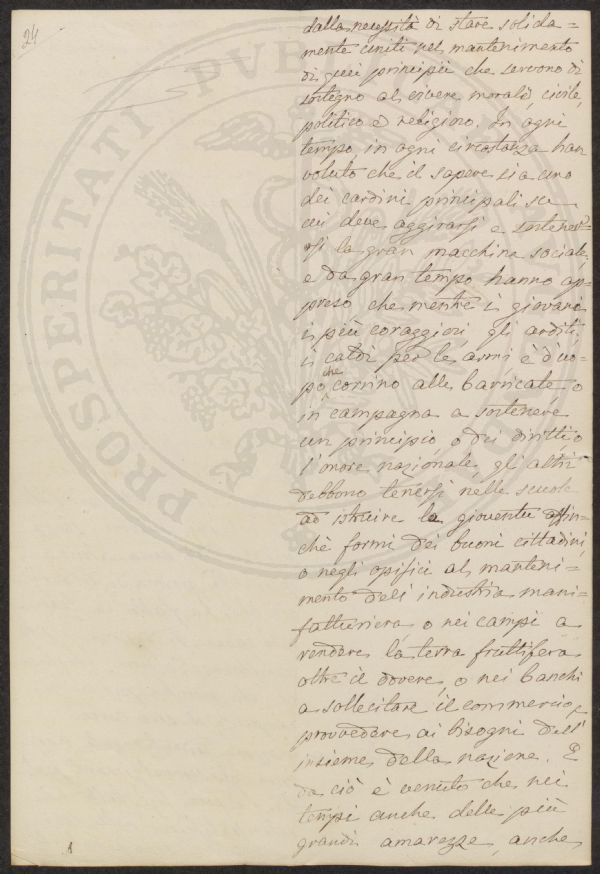 24
dalla necessità di stare solida=
mente uniti nel mantenimento
di quei principii che servono di
sostegno al vivere morale, civile,
politico e religioso. In ogni
tempo in ogni circostanza han
voluto che il sapere sia uno
dei cardini principali su
cui deve aggirarsi e sostener=
si la gran macchina sociale,
e da gran tempo hanno ap=
preso che mentre i giovani
i più coraggiosi, gli arditi,
i caldi per le armi è d'uo=
po che corrino alle barricate o
in campagna a sostenere
un principio, o dei diritti o
l'onore nazionale, gli altri
debbono tenersi nelle scuole
ad istruire la gioventù affin=
chè formi dei buoni cittadini,
o negli opifici al manteni=
mento dell'industria mani=
fatturiera, o nei campi a
rendere la terra fruttifera
oltre il dovere, o nei banchi
a sollecitare il commercio, e
provvedere ai bisogni dell'
insieme della nazione. E
da ciò è venuto che nei
tempi anche delle più
grandi amarezze, anche
PROSPERITATI PVBLICAE